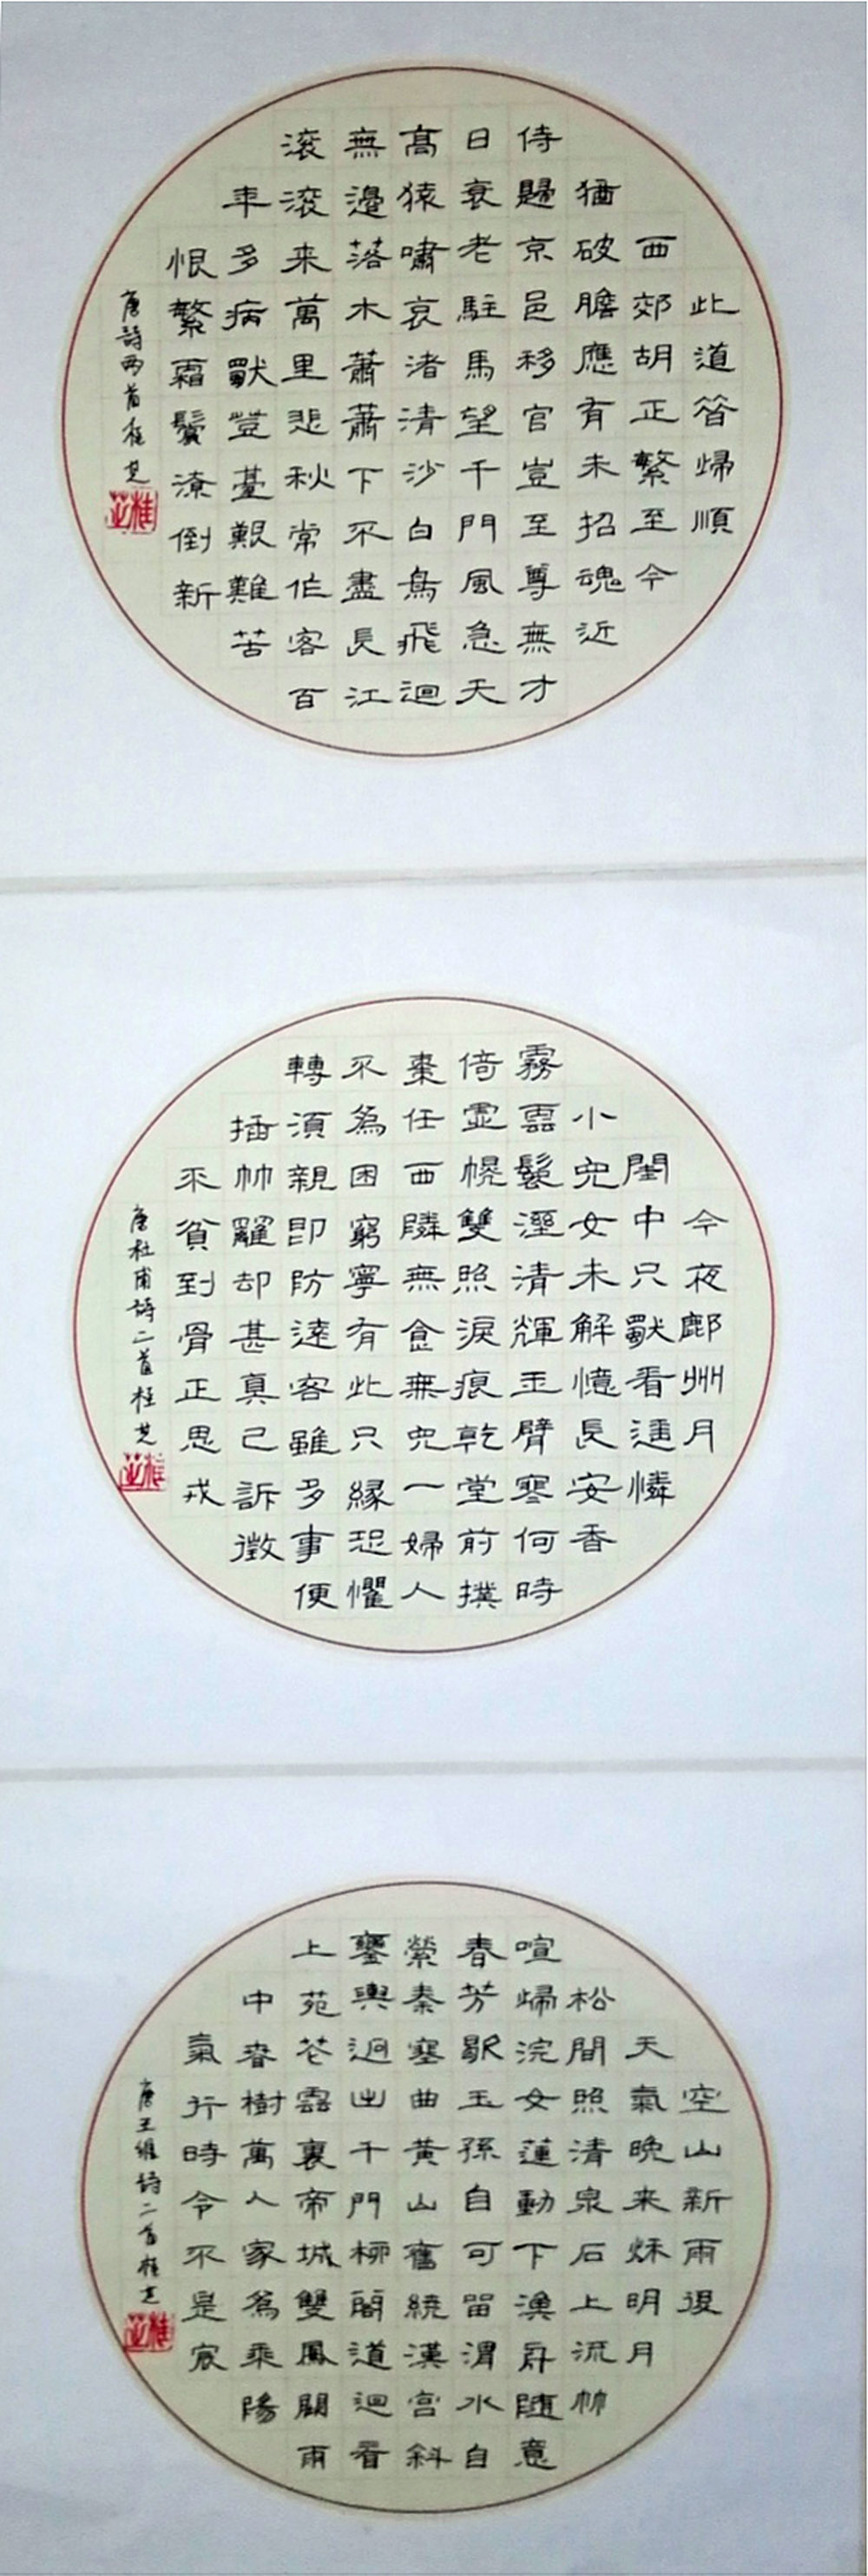 此道昔歸順
西郊胡正繁至今
猶破膽應有未招魂近
侍歸京邑移官豈至尊無才
日衰老駐馬望千門風急天
高猿嘯哀渚清沙白鳥飛迴
無邊落木蕭蕭下不盡長江
滚滚来萬里悲秋常作客百
年多病獨登臺艱難苦
恨繁霜鬢潦倒新
唐詩兩首桂芝
桂芝
今夜鄜州月
閨中只獨看遥憐
小兒女未解憶長安香
霧雲鬟溼清輝玉臂寒何時
倚虛幌雙照淚痕乾堂前撲
棗任西隣無食無兒一婦人
不為困窮寧有此只緣恐懼
轉須親即防遠客雖多事便
插疎籬却甚真已訴徵
求貧到骨正思戎
唐杜甫詩二首桂芝
桂芝
空山新雨後
天氣晚来秋明月
松間照清泉石上流竹
喧歸浣女蓮動下漁舟隨意
春芳歇王孫自可留渭水自
縈秦塞曲黄山舊繞漢宮斜
鑾輿迥出千門柳閣道迴看
上苑花雲裏帝城雙鳳闕雨
中春樹萬人家為乘陽
氣行時令不是宸
唐王維詩二首桂芝
桂芝